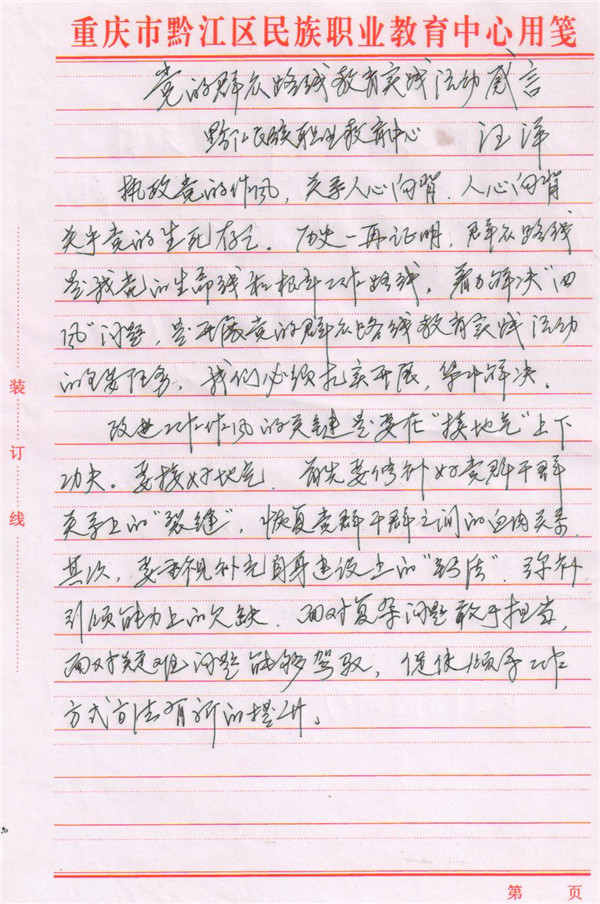 重庆市黔江区民族职业教育中心用笺
党的群众路线教育实践活动感言
黔江民族职业教育中心 汪洋
执政党的作风，关系人心向背，人心向背
关乎党的生死存亡。历史一再证明，群众路线
是我党的生命线和根本工作路线，着力解决“四
风”问题，是开展党的群众路线教育实践活动
的重要任务，我们必须扎实开展，集中解决。
改进工作作风的关键是要在“接地气”上下
功夫。要接好地气，首先要修补好党群干群
关系上的“裂缝”，恢复党群干群之间的血肉关系，
其次，要重视补充自身建设上的“钙质”，弥补
引领能力上的欠缺，面对复杂问题敢于担当，
面对疑难问题能够驾驭，促使领导工作
方式方法有新的提升。
装
订
线
第 页